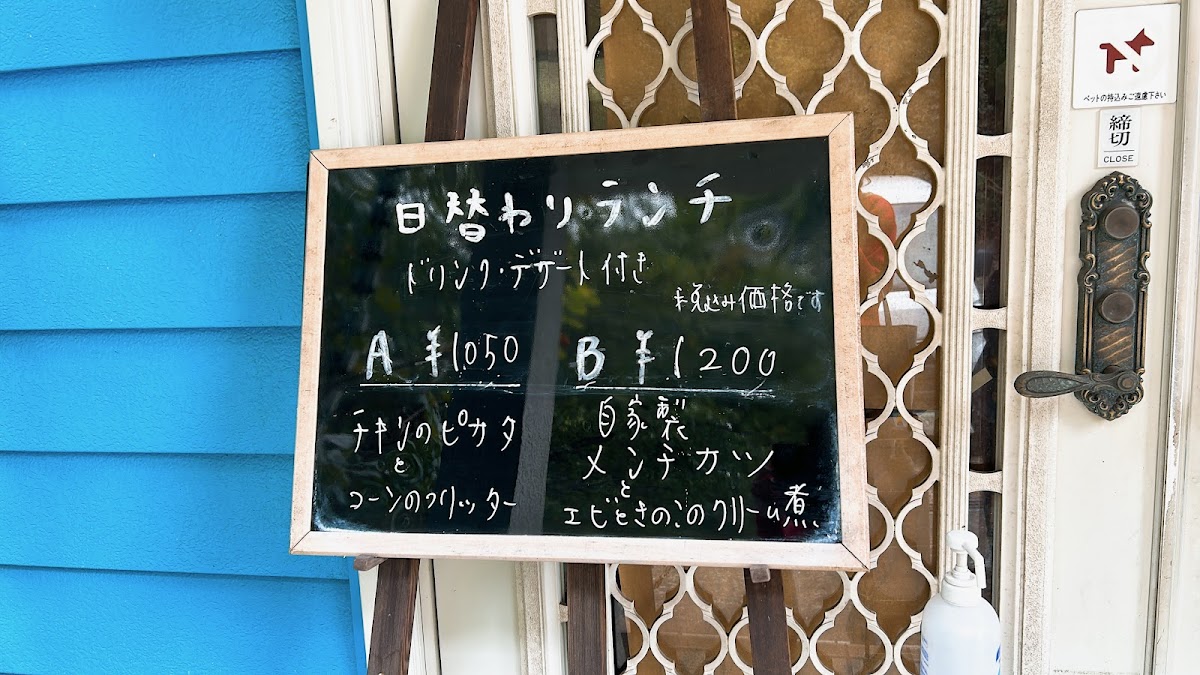 日替わりランチ
ドリンク・デザート付き
※税込み価格です
A ¥1050
チキンのピカタ
と
コーンのフリッター
B ¥1200
自家製
メンチカツ
と
エビときのこのクリーム煮
ペットの持込みご遠慮下さい
締切
CLOSE